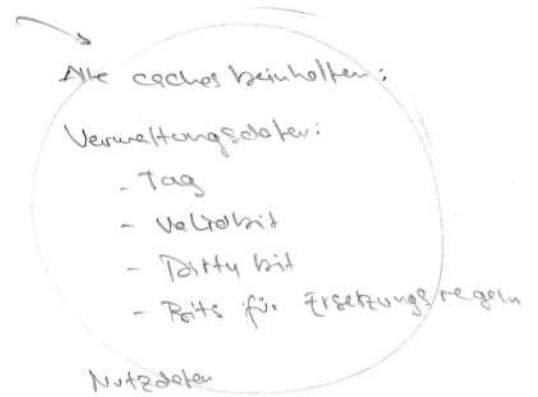 Alle caches beinhalten:
Verwaltungsdaten:
- Tag
- Validbit
- Dirty bit
- Bits für Ersetzungsregeln
Nutzdaten